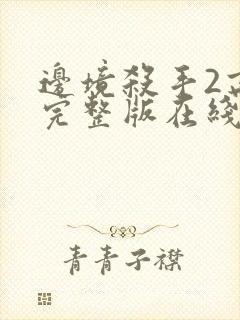 邊境殺手2高
完整版在綫
青青子襟